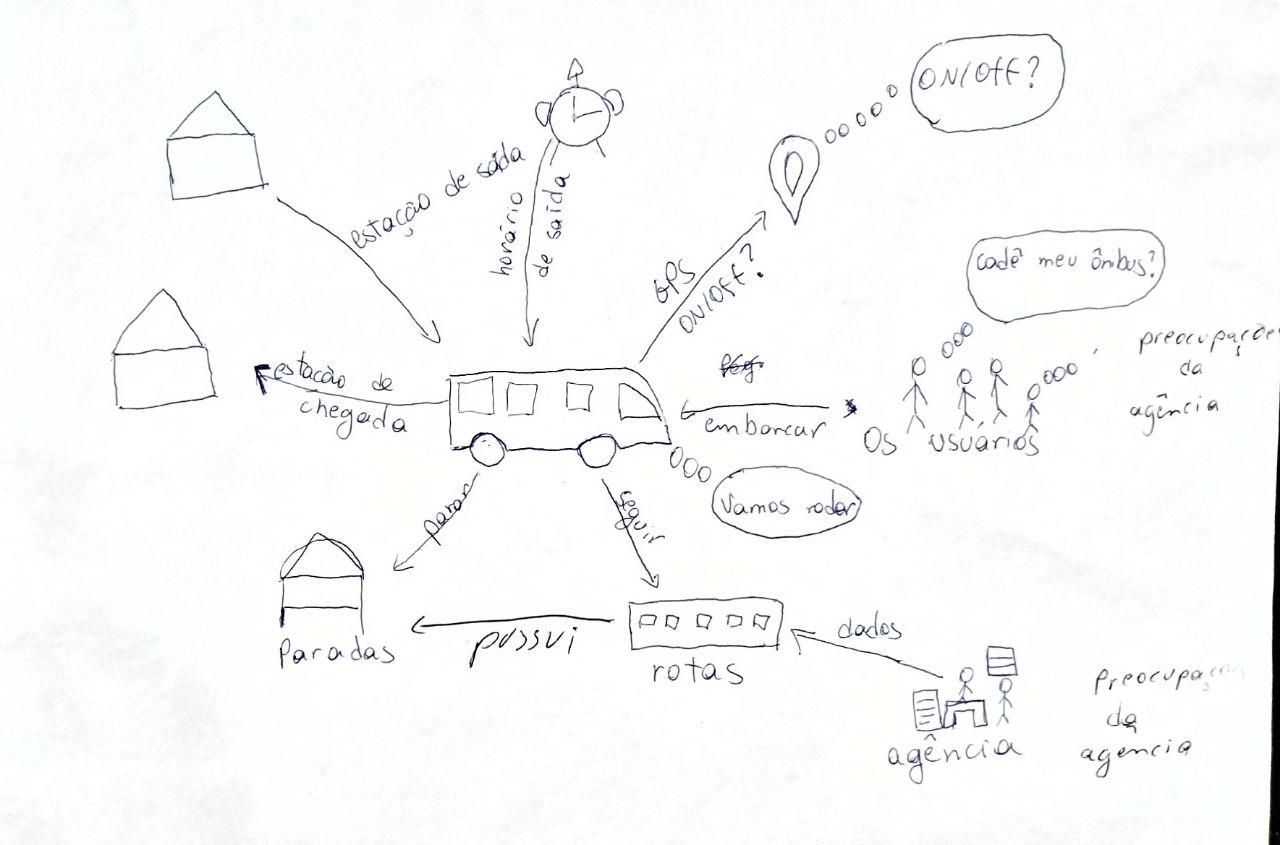 ON/OFF?
estação de saída
horário
de saída
GPS
ON/OFF?
cadê meu ônibus?
preocupações
da
agência
estação de
chegada
embarcar
Os usuários
Vamos rodar
parar
seguir
Paradas
possui
rotas
dados
agência
Preocupaçoes
da
agencia